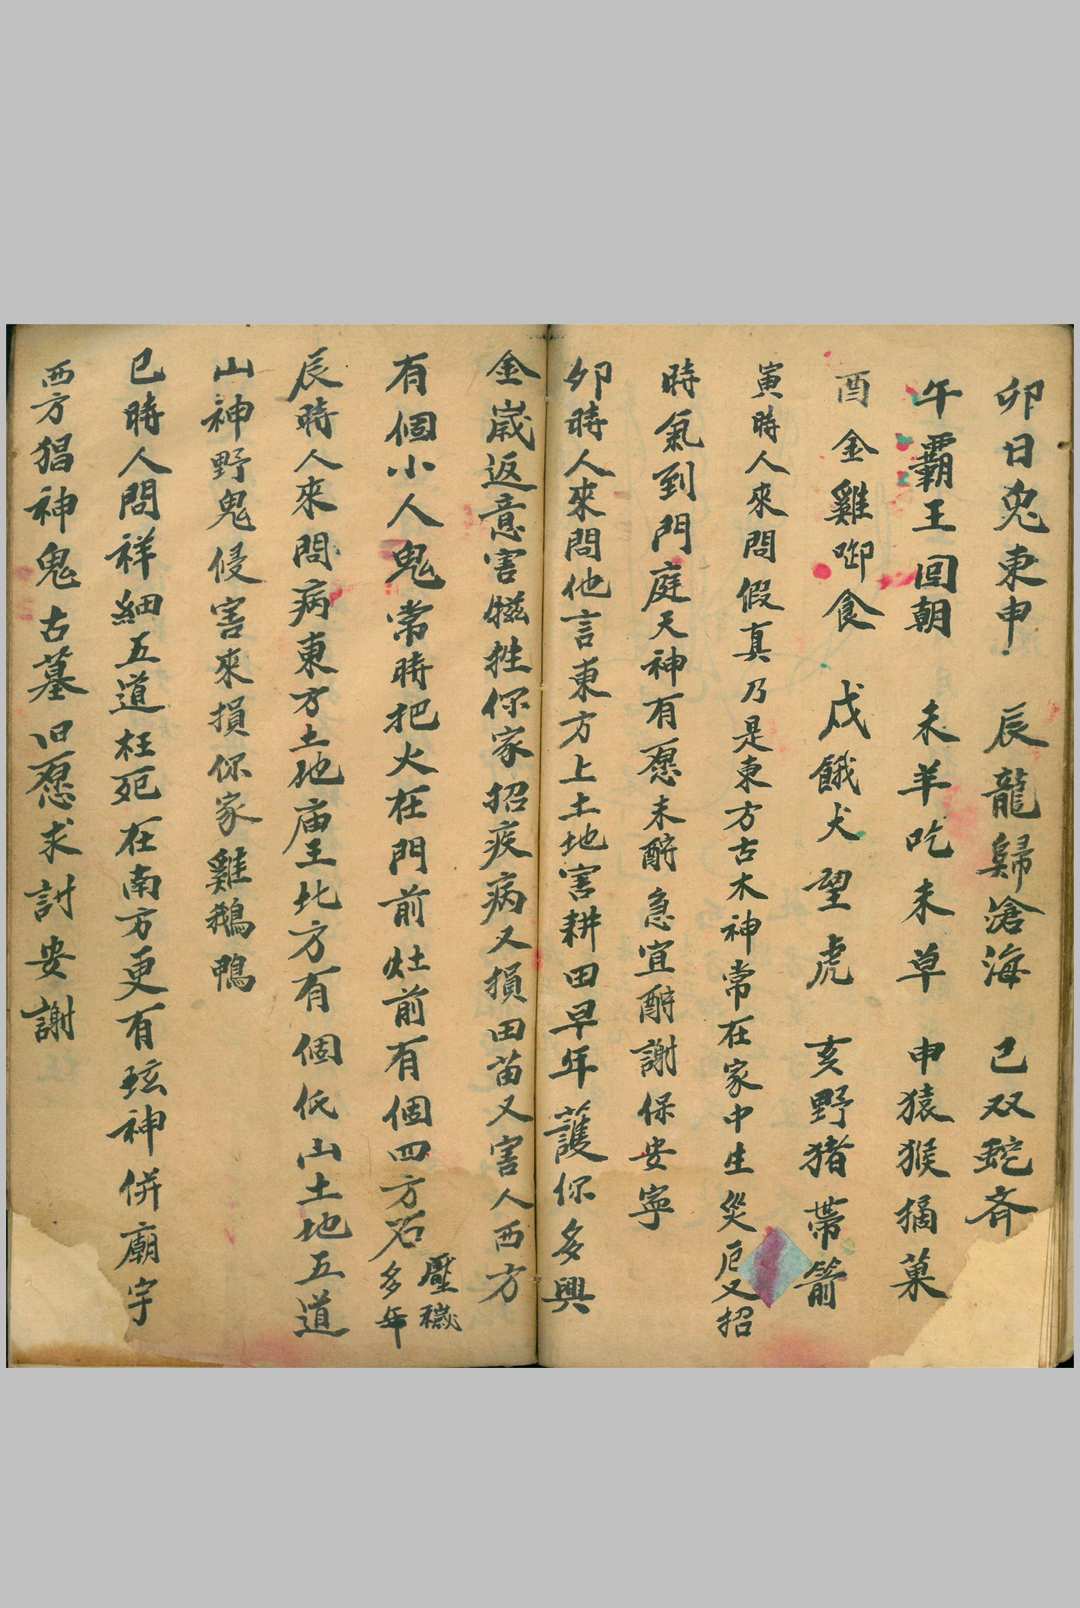 卯日兎東申 辰龍歸滄海 己双蛇斉
午霸王回朝 未羊吃未草 申猿猴摘菓
酉金雞啣食 戌餓犬望虎 亥野猪帶箭
寅時人來問假真乃是東方古木神常在家中生災厄又招
時氣到門庭天神有愿未酧急宜酧謝保安寧
卯時人來問他言東方上土地害耕田早年護你多興
金歲返意害犠牲你家招疾病又損田苗又害人西方
有個小人鬼常時把火在門前灶前有個四方石多年壓穢
辰時人來問病東方土地庙王北方有個低山土地五道
山神野鬼侵害來損你家雞鵝鴨
巳時人問祥細五道枉死在南方更有玹神併廟宇
西方猖神鬼古墓旧愿求討安謝